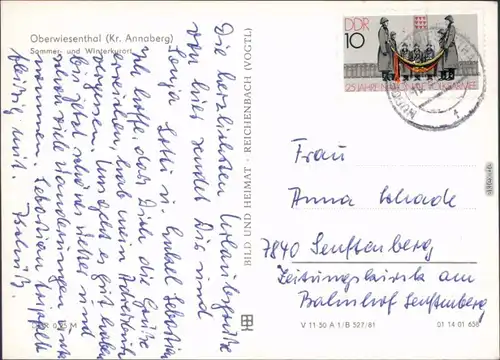 Oberwiesenthal (Kr. Annaberg)
Sommer- und Winterkurort
Die herzlichsten Urlaubsgrüße
von hier sendet Dir und
Sonja Lotti u. Enkel Sebastian
Ich hoffe, daß Dich die Grüße
erreichen, hab mein Adreßbuch
vergessen. Uns geht es gut, haben
bis jetzt schönes Wetter und
schon viele Wanderungen
nommen. Sebastian
fleißig mit.
BILD UND HEIMAT · REICHENBACH (VOGTL)
DDR
10
25 JAHRE NATIONALE VOLKSARMEE
Frau
Anna Schade
7840 Senftenberg
Zeitungskiosk am
Bahnhof Senftenberg
V 11 50 A 1/B 527/81
01 14 01 658